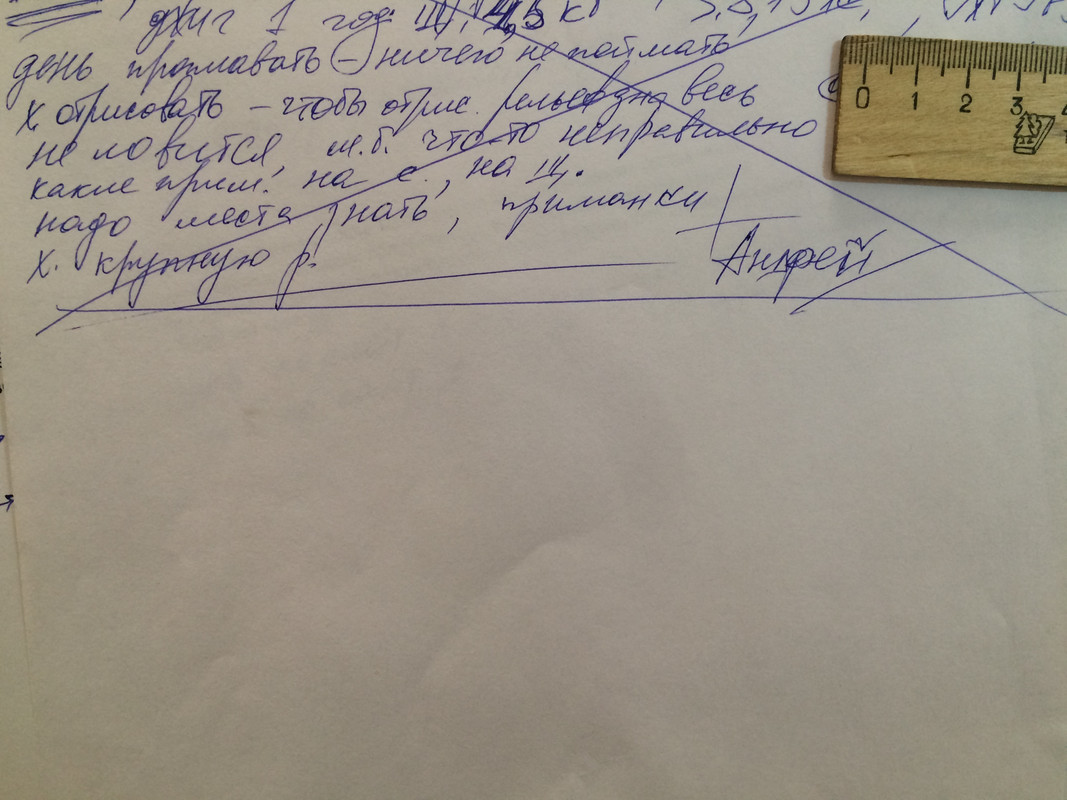 джиг 1 год Щ, 14,5 кг
день проплавать – ничего не поймать,
х. отрисовать – чтобы отрис. рельеф дна весь
не ловится, м.б. что-то неправильно
какие прим. на с., на Щ.
надо места знать, приманки
х. крупную р.
Андрей
0 1 2 3 4